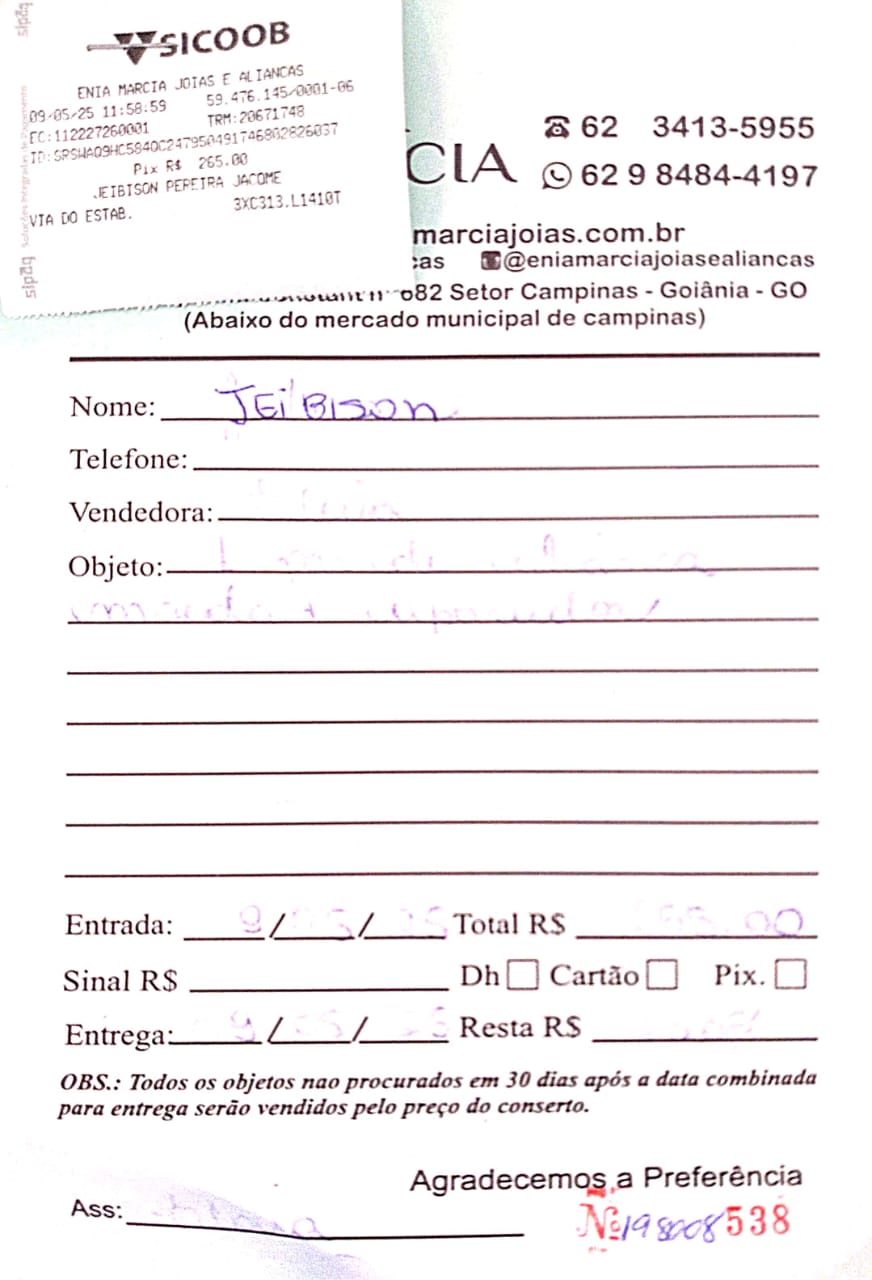 SICOOB
ENIA MARCIA JOIAS E ALIANCAS
09-05/25 11:58:59 59.476.145/0001-06
EC:112227260001 TRM:20671748
Pix R$ 265.00
JEIBISON PEREIRA JACOME
VIA DO ESTAB. 3XC313.L1410T
sipag Soluções Integradas de Pagamento
CIA
62 3413-5955
62 9 8484-4197
marciajoias.com.br
cas @eniamarciajoiasealiancas
682 Setor Campinas - Goiânia - GO
(Abaixo do mercado municipal de campinas)
Nome: JEiBison
Telefone:
Vendedora:
Objeto: 1
Entrada: 9/05/25 Total R$
Sinal R$ Dh Cartão Pix.
Entrega: 9/05/25 Resta R$
OBS.: Todos os objetos nao procurados em 30 dias após a data combinada
para entrega serão vendidos pelo preço do conserto.
Agradecemos a Preferência
Ass:
Nº 198008538